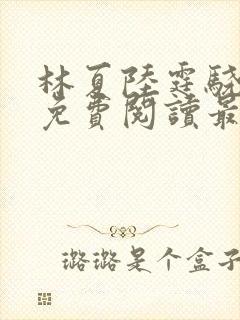 林夏陸霆驍
免費閱讀最
璐璐是个盒子